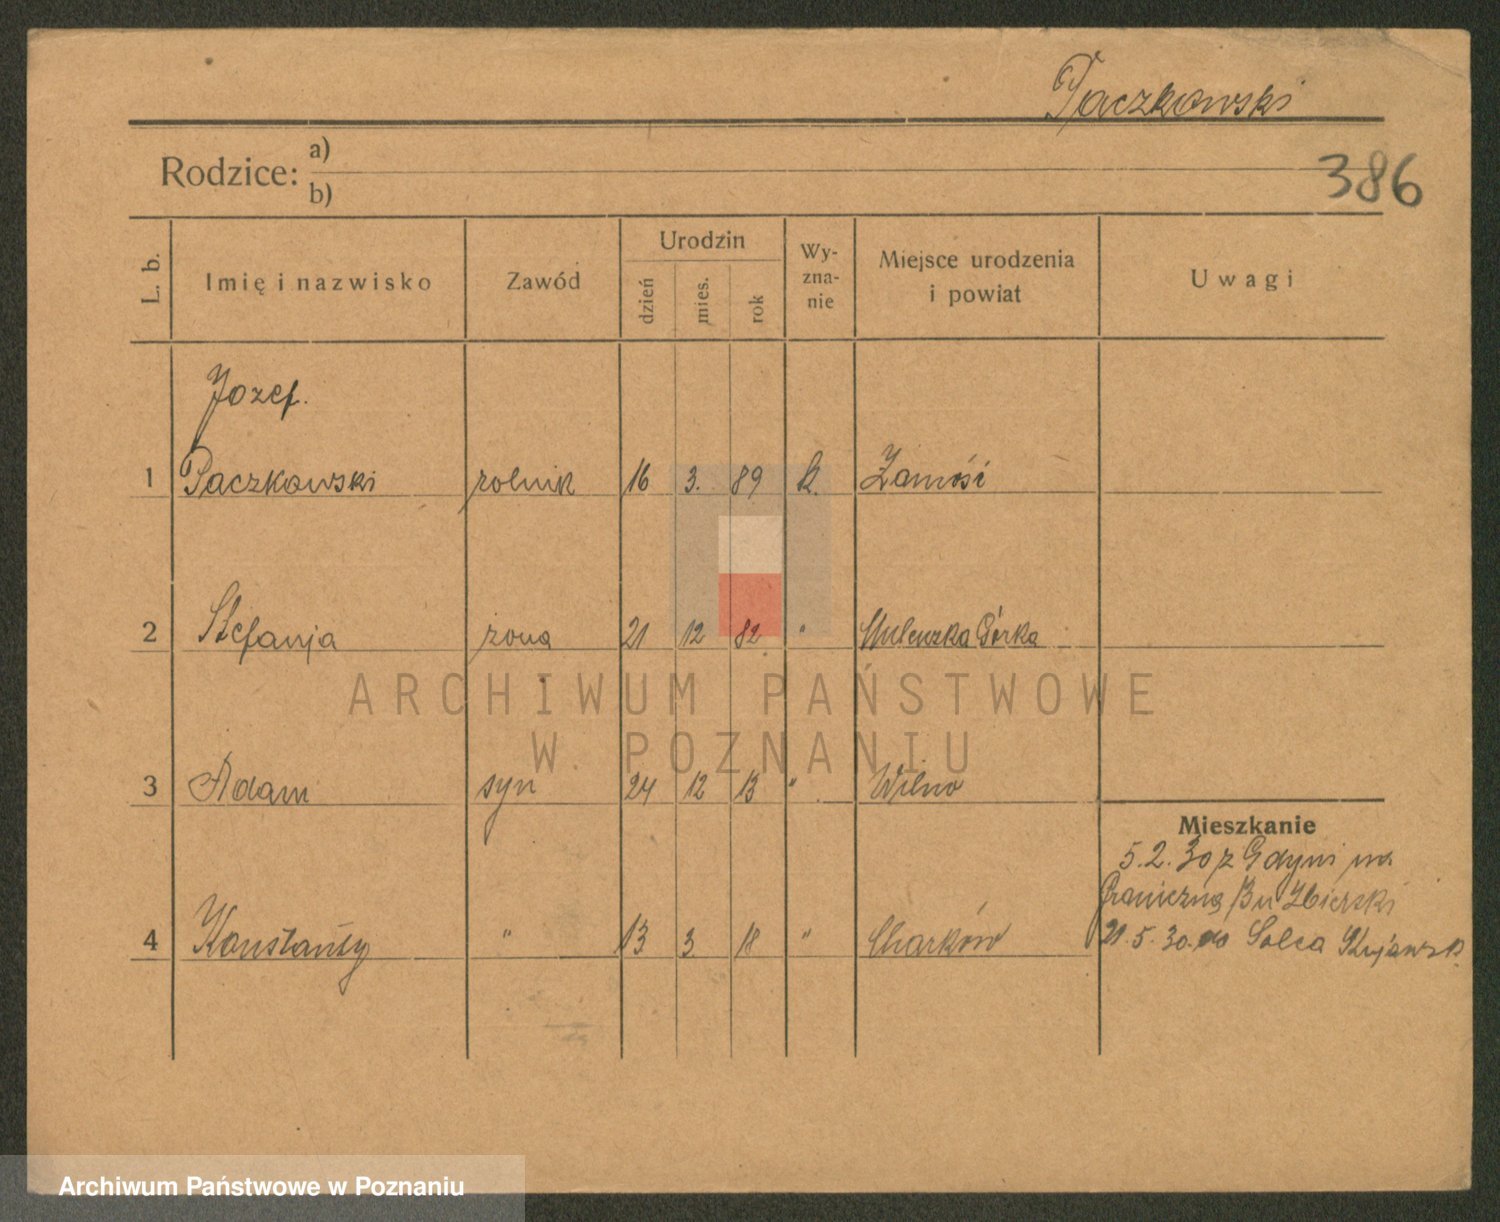 Paczkowski
386
Rodzice: a)
b)
L. b. Imię i nazwisko Zawód Urodzin dzień mies. rok Wy-zna-nie Miejsce urodzenia i powiat Uwagi
Józef.
1 Paczkowski rolnik 16 3. 89 k. Zamość
2 Stefanja żona 21 12 82 " Górka
3 Adam syn 24 12 13 " Wilno
Mieszkanie
5.2.30 z Gdyni na
Graniczną
4 Konstanty " 13 3 18 " Charków
21.5.30 do Solca Kujawsk.
ARCHIWUM PAŃSTWOWE
W POZNANIU
Archiwum Państwowe w Poznaniu